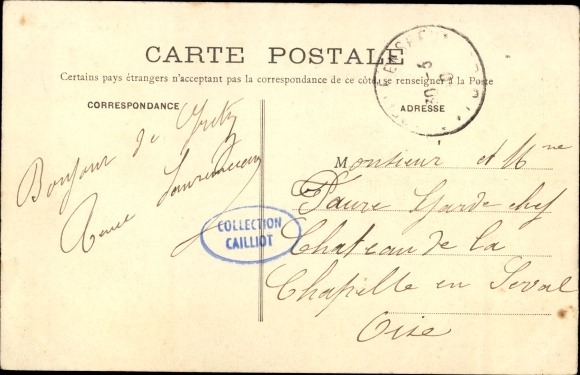 CARTE POSTALE
Certains pays étrangers n'acceptant pas la correspondance de ce côté, se renseigner à la Poste
CORRESPONDANCE
ADRESSE
Bonjour de
Monsieur et Mme
Faure Garde chef
Chateau de la
Chapelle en Serval
Oise
COLLECTION
CAILLIOT